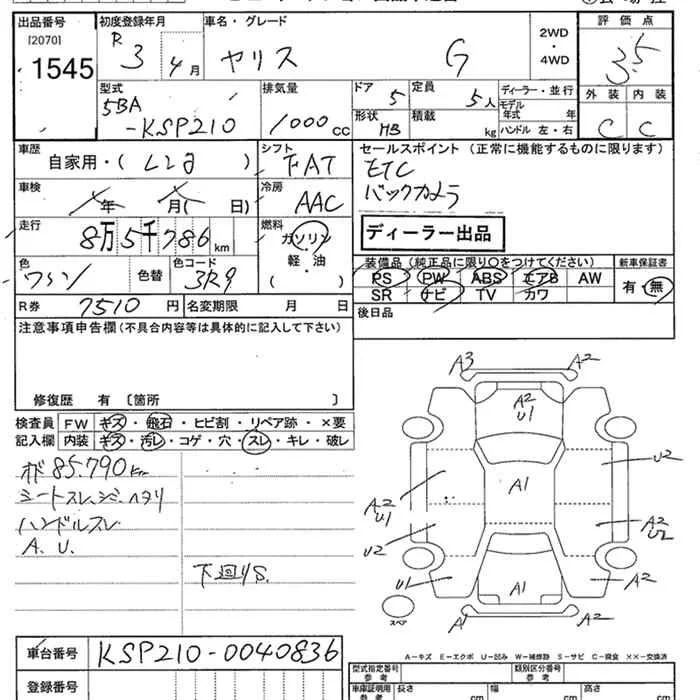 出品番号
[2070]
1545
初度登録年月
R 3 年 4 月
車名・グレード
ヤリス G
2WD
・
4WD
評価点
3.5
外装 内装
C C
型式
5BA
-KSP210
排気量
1000 cc
ドア 5
形状 HB
定員 5人
積載 kg
ディーラー・並行
モデル
年式 年
ハンドル 左・右
車歴
自家用・( レンタ )
シフト
FAT
セールスポイント (正常に機能するものに限ります)
ETC
バックカメラ
ディーラー出品
車検
年 月( 日)
冷房
AAC
走行
8万5千786 km
燃料
ガソリン
・
軽・油
( )
色
ワイン 色替
色コード
3R9
装備品 (純正品に限り○をつけてください)
PS PW ABS エアB AW
SR ナビ TV カワ
新車保証書
有・無
R券 7510 円
名変期限 月 日
後日品
注意事項申告欄 (不具合内容等は具体的に記入して下さい)
修復歴 有 〔箇所 〕
検査員 FW キズ・飛石・ヒビ割・リペア跡・×要
記入欄 内装 キズ・汚レ・コゲ・穴・スレ・キレ・破レ
オド 85.790 km
シートスレ、シミ、ヘタリ
ハンドルスレ
A. U.
下回りS.
A3 A2
A2
U1
U2
A1
A2
U1
A2
U2
U2
U1
A1
A2
A1 A2
スペア
A－キズ E－エクボ U－凹み W－補修跡 S－サビ C－腐食 ××－交換済
車台番号
KSP210-0040836
登録番号
型式指定番号
参考
類別区分番号
参考
車庫証明用
参考
長さ cm
幅 cm
高さ cm